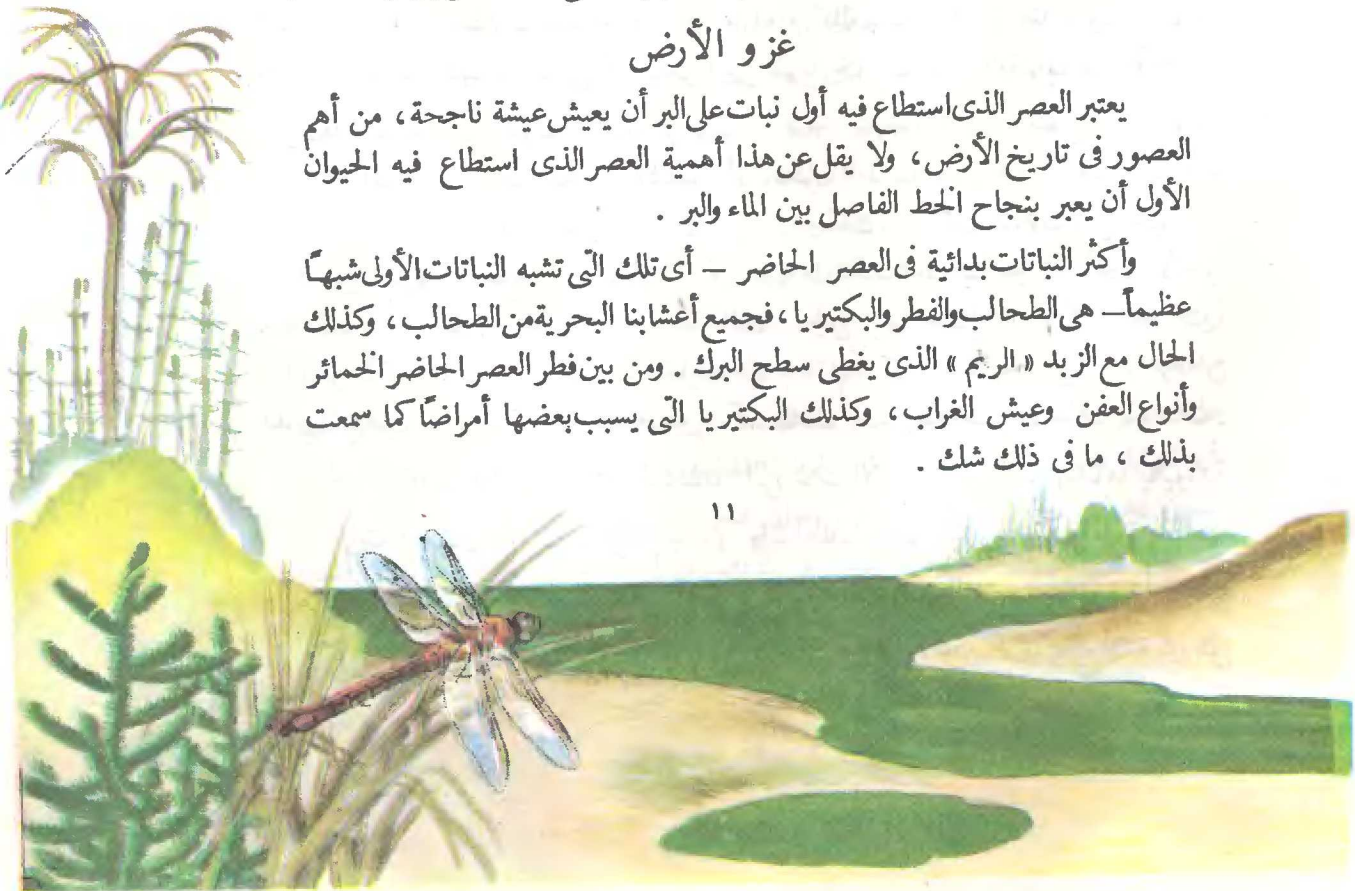 غزو الأرض
يعتبر العصر الذى استطاع فيه أول نبات على البر أن يعيش عيشة ناجحة ، من أهم
العصور فى تاريخ الأرض ، ولا يقل عن هذا أهمية العصر الذى استطاع فيه الحيوان
الأول أن يعبر بنجاح الخط الفاصل بين الماء والبر .
وأكثر النباتات بدائية فى العصر الحاضر – أى تلك التى تشبه النباتات الأولى شبهاً
عظيماً – هى الطحالب والفطر والبكتيريا ، فجميع أعشابنا البحرية من الطحالب ، وكذلك
الحال مع الزبد « الريم » الذى يغطى سطح البرك . ومن بين فطر العصر الحاضر الخمائر
وأنواع العفن وعيش الغراب ، وكذلك البكتيريا التى يسبب بعضها أمراضاً كما سمعت
بذلك ، ما فى ذلك شك .
١١